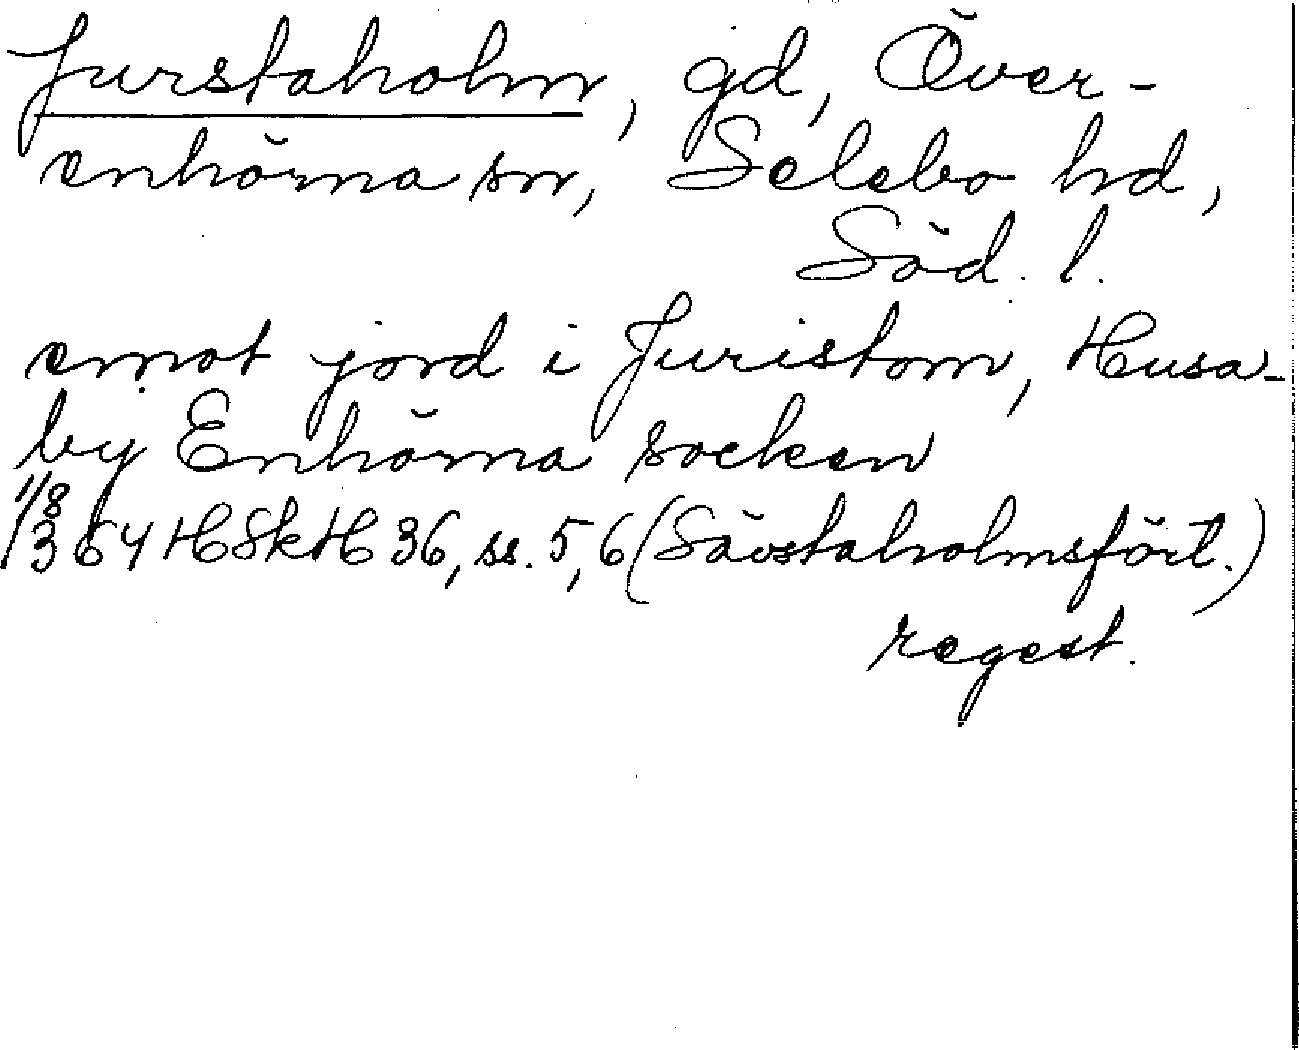 Jurstaholm, gd, Över-
enhörna sn, Selebo hd,
Söd. l.
emot jord i Juristom, Husa-
by Enhörna socken
1/8
1364 HSkH 36, ss. 5, 6 (Sävstaholmsfört.)
regest.